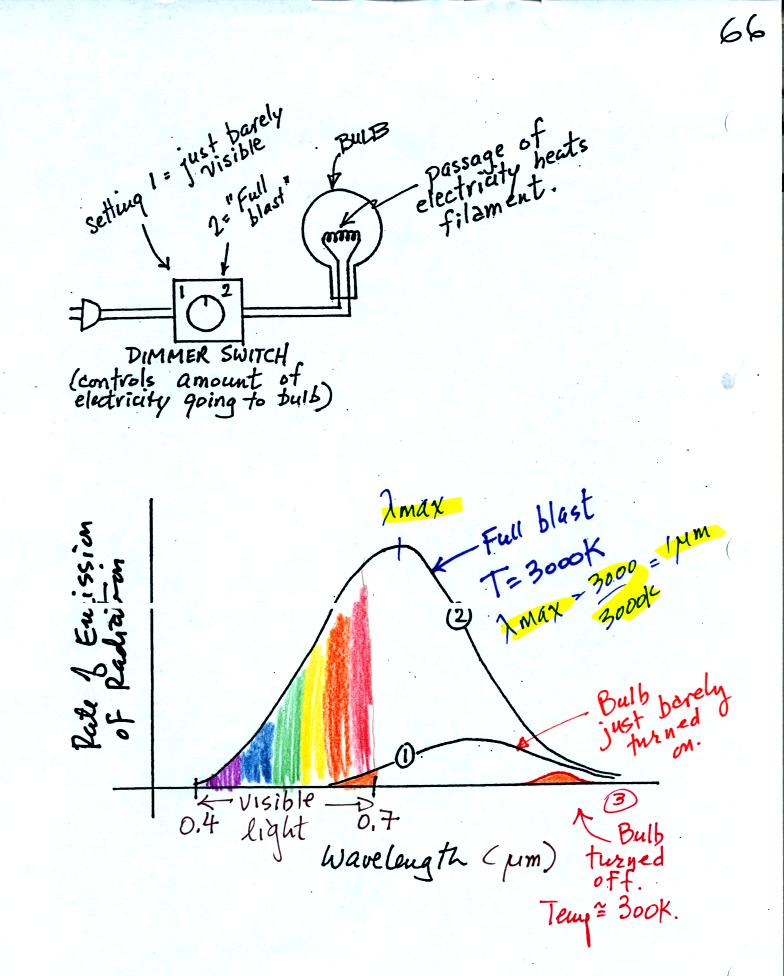 66
setting 1 = just barely
visible
2 = "Full
blast"
BULB
passage of
electricity heats
filament.
1 2
DIMMER SWITCH
(controls amount of
electricity going to bulb)
λmax
Full blast
T = 3000K
λmax = 3000 = 1μm
3000K
2
Rate of Emission
of Radiation
Bulb
just barely
turned
on.
1
3
← visible →
light
0.4 0.7
Wavelength (μm)
Bulb
turned
off.
Temp ≅ 300K.